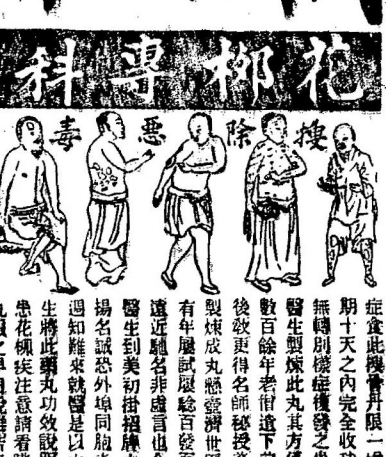 花柳專科
搜除惡毒
症食此搜骨丹限一
期十天之內完全收
無轉別樣症復發之
醫生製煉此丸其方
數百餘年老僧遺下
後敎更得名師秘授
製煉成丸懸壺濟世
有年屢試屢驗百發
遠近馳名非虛言也
醫生到美初掛招牌
揚名誠恐外埠同胞
週知難來就醫是以
生將此藥丸功效說
患花柳疾注意請看